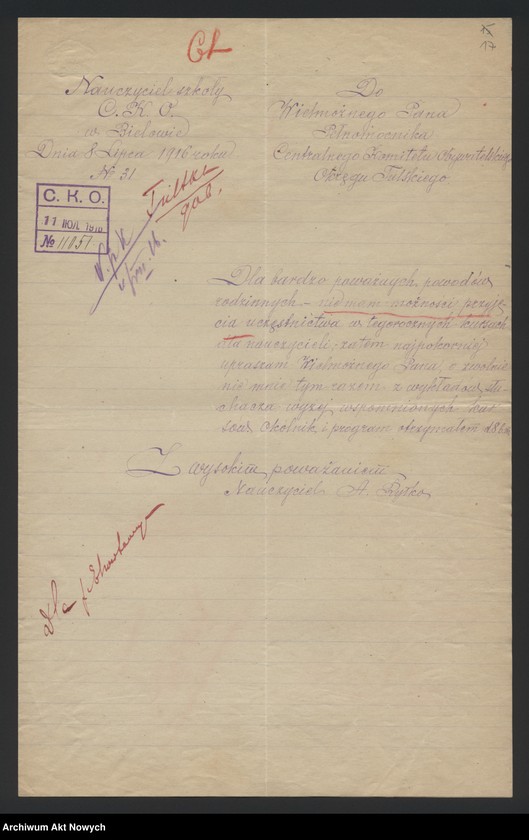 17
Nauczyciel szkoły
C. K. O.
w Bielowie
Dnia 8 Lipca 1916 roku
№ 31
Do
Wielmożnego Pana
Pełnomocnika
Centralnego Komitetu Obywatelskiego
Okręgu Tulskiego.
С. К. О.
11 ИЮЛ 1916
№ 11051
Dla bardzo poważnych powodów
rodzinnych – nie mam możności przyję-
cia uczęstnictwa w tegorocznych kursach
dla nauczycieli, zatem najpokorniej
upraszam Wielmożnego Pana, o zwolnie-
nie mnie tym razem z wykładów słu-
chacza wyżej wspomnionych kur-
sów. Okólnik i program otrzymałem
Z wysokim poważaniem
Nauczyciel A.
Dla
Archiwum Akt Nowych